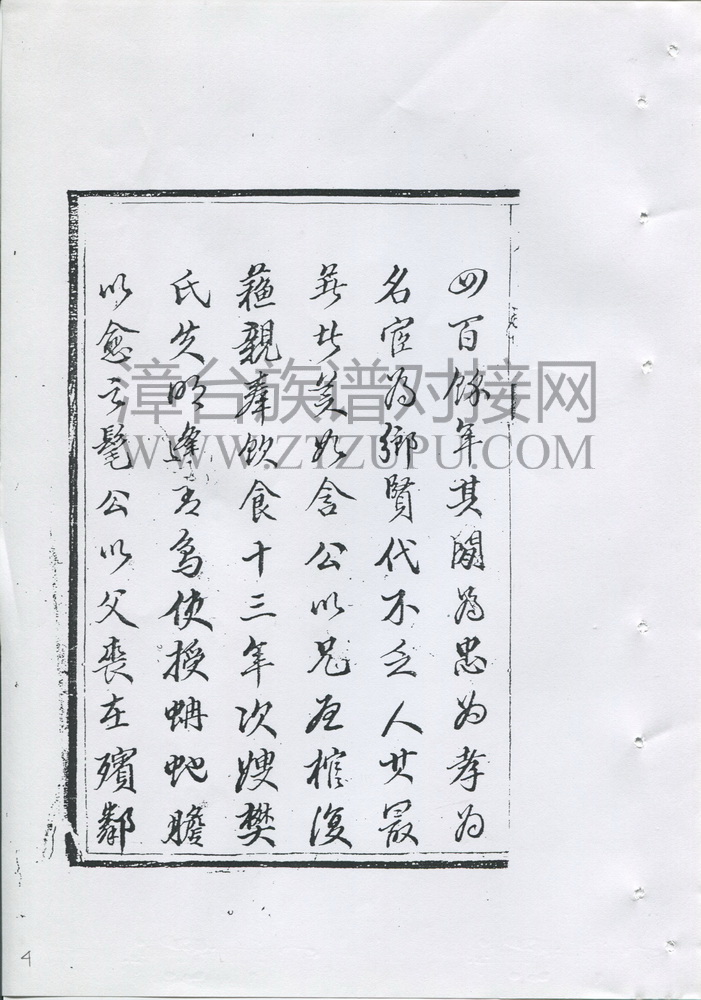 四百餘年其閥為忠為孝為
名宦為鄉賢代不乏人其最
著者莫如含公以兄在棺復
蘓親奉飲食十三年次嫂樊
氏失明逢青鳥使授蚺蛇膽
以愈之髦公以父喪在殯鄰
漳台族谱对接网
WWW.ZTZUPU.COM
4